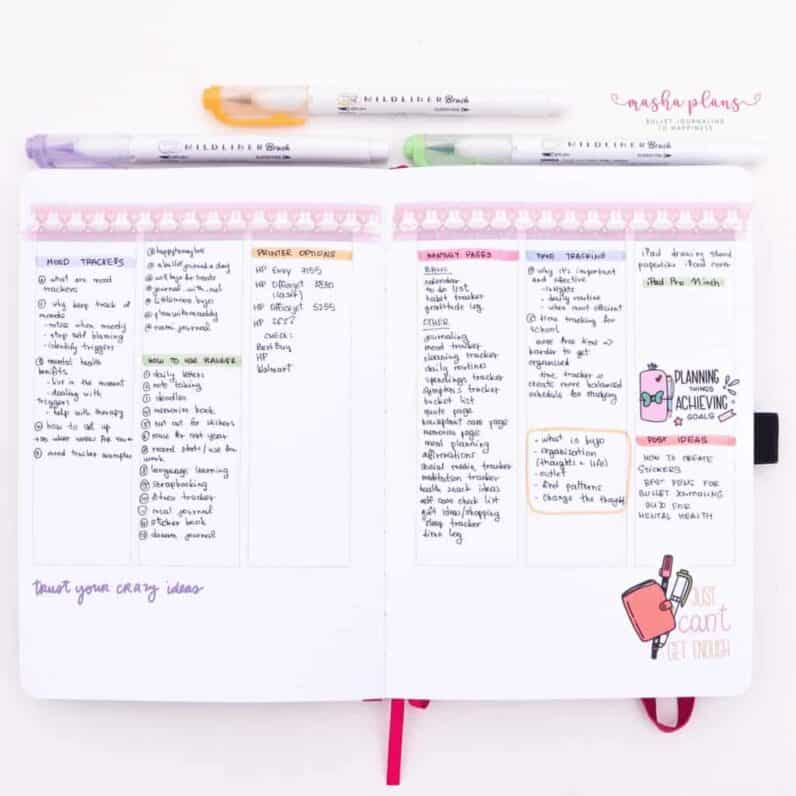 masha plans
BULLET JOURNALING
TO HAPPINESS
MILDLINER Brush
MILDLINER Brush
MILDLINER Brush
MOOD TRACKERS
what are mood
trackers
why keep track of
moods
- notice when moody
- stop self blaming
- identify triggers
mental health
benefits
- live in the moment
- dealing with
triggers
- help with therapy
how to set up
mood tracker examples
@ a bullet journal a day
HOW TO USE PLANNER
daily letters
note taking
doodles
memories book
cut out for stickers
save for next year
record starts / use for
work
language learning
scrapbooking
fitness tracker
meal journal
sticker book
dream journal
PRINTER OPTIONS
HP Envy 7155
HP Officejet
HP Officejet 5255
HP
CHECK:
Best Buy
HP
Walmart
trust your crazy ideas
MONTHLY PAGES
BASIC
calendar
to do list
habit tracker
gratitude log
OTHER
journaling
mood tracker
cleaning tracker
daily routines
spendings tracker
symptoms tracker
bucket list
quote page
memories page
meal planning
affirmations
social media tracker
meditation tracker
health snack ideas
self care check list
gift ideas/shopping
sleep tracker
time log
TIME TRACKING
why it's important
and effective
- insights
- daily routine
- when most efficient
time tracking for
school
more free time =>
harder to get
organised
time tracker =
create more balanced
schedule for studying
- what is bujo
- organisation
(thoughts + life)
- outlet
- find patterns
- change the thoughts
iPad drawing stand
paperlike iPad cover
iPad Pro 11 inch
PLANNING
THINGS
ACHIEVING
GOALS
POST IDEAS
HOW TO CREATE
STICKERS
BEST PENS FOR
BULLET JOURNALING
BUJO FOR
MENTAL HEALTH
JUST
can't
GET ENOUGH